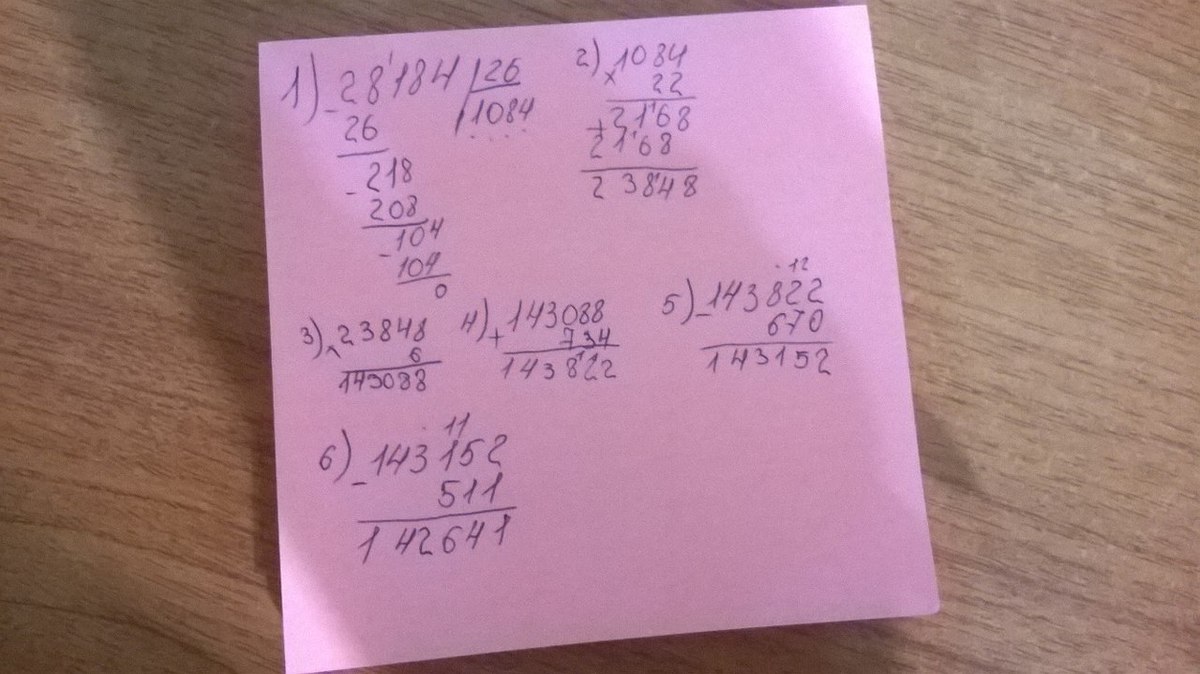 1) - 28'184 | 26
26 | 1084
- 218
208
- 104
104
0
2) × 1084
22
+ 2168
2168
23848
3) × 23848
6
143088
4) + 143088
734
143822
12
5) - 143822
670
143152
11
6) - 143152
511
142641